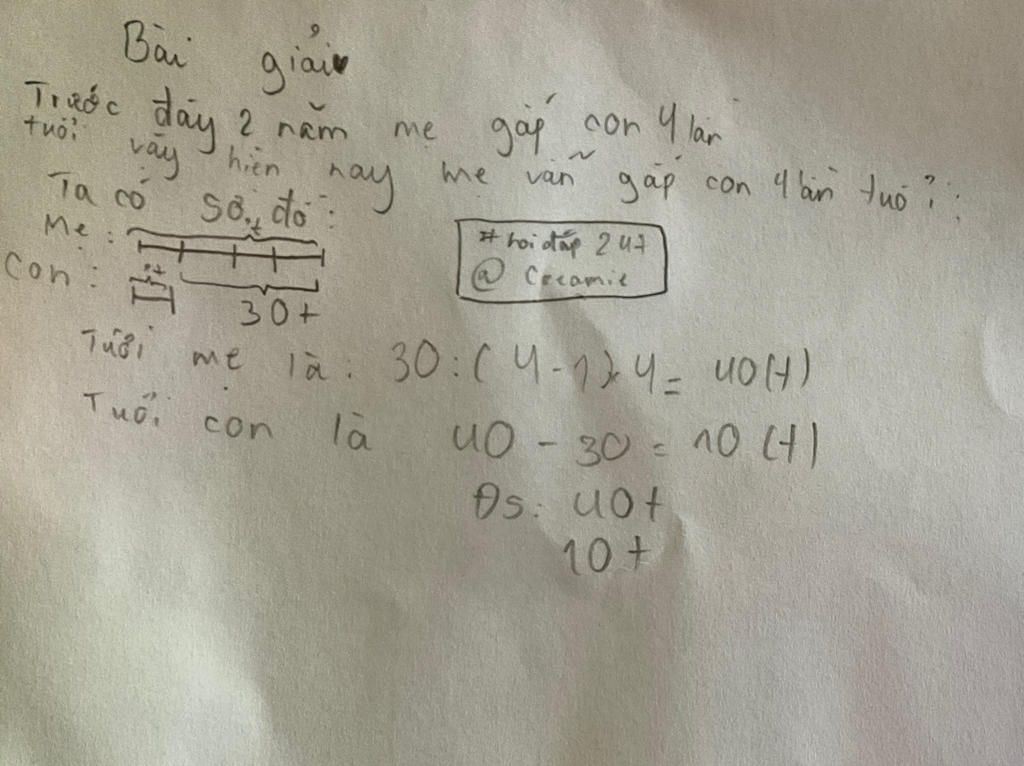 Bài giải
Trước đây 2 năm mẹ gấp con 4 lần
tuổi vậy hiện nay mẹ vẫn gấp con 4 lần tuổi:
Ta có sơ đồ:
Mẹ: ?t
Con: ?t
30t
#hoi đáp 247
@ Creamie
Tuổi mẹ là: 30:(4-1)x4= 40(t)
Tuổi con là 40-30=10(t)
Đs: 40t
10t